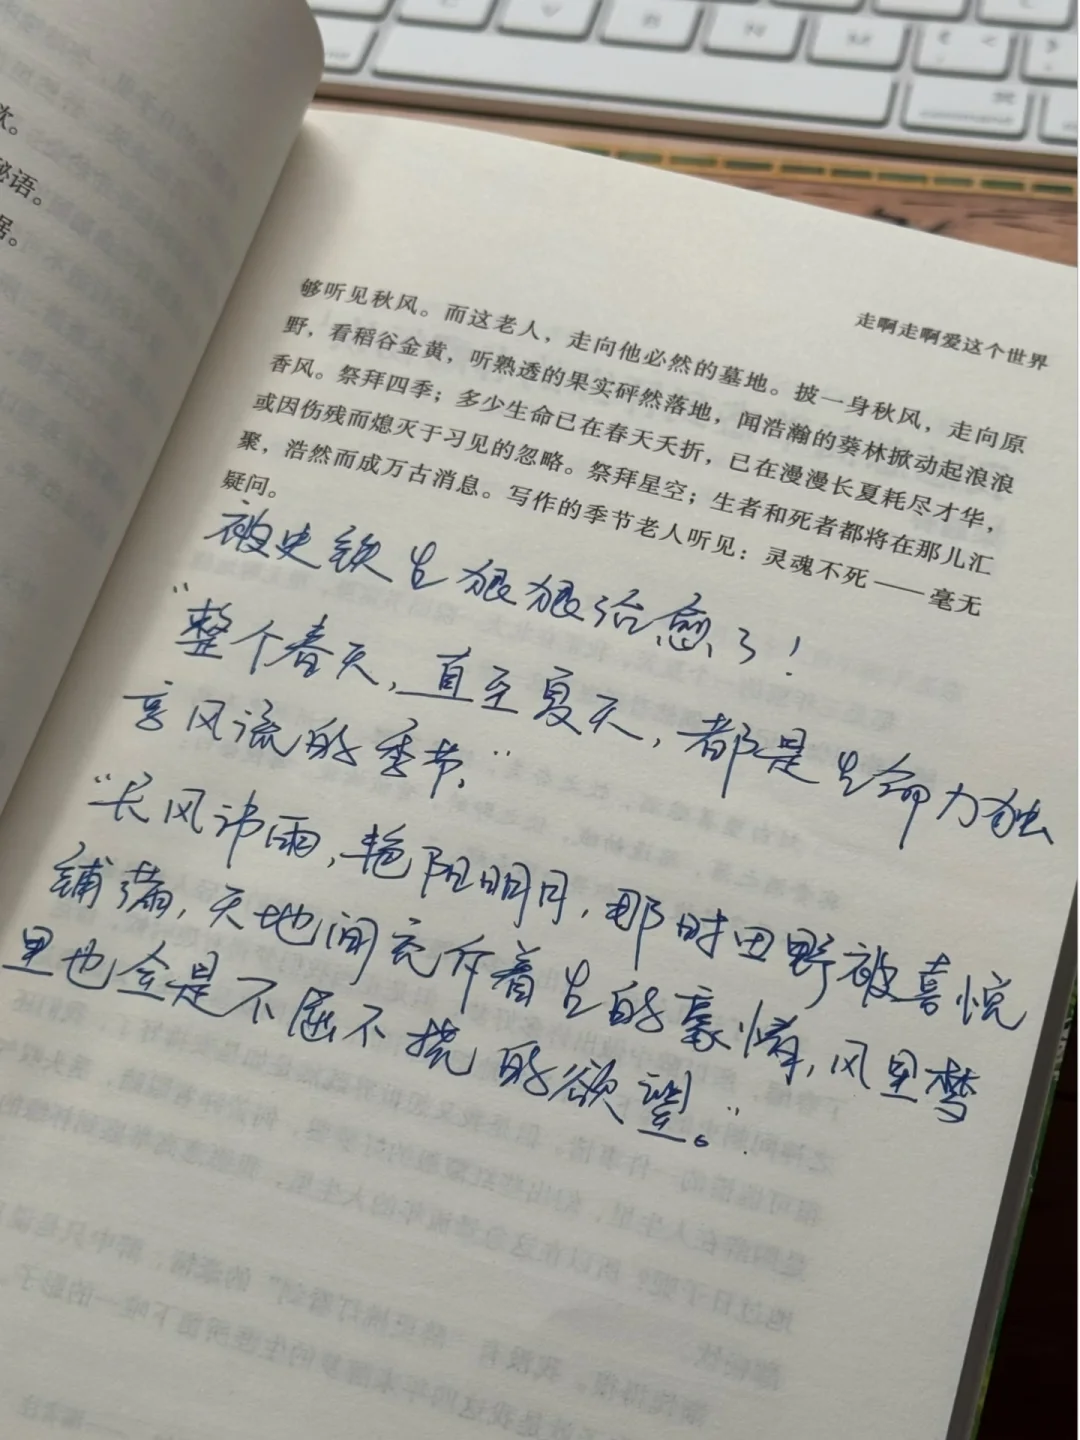 欢。
秘语。
居。
走啊走啊爱这个世界
够听见秋风。而这老人，走向他必然的墓地。披一身秋风，走向原
野，看稻谷金黄，听熟透的果实砰然落地，闻浩瀚的葵林掀动起浪浪
香风。祭拜四季；多少生命已在春天夭折，已在漫漫长夏耗尽才华，
或因伤残而熄灭于习见的忽略。祭拜星空；生者和死者都将在那儿汇
聚，浩然而成万古消息。写作的季节老人听见：灵魂不死——毫无
疑问。
被史铁生狠狠治愈了！
“整个春天，直至夏天，都是生命力独
享风流的季节。”
“长风沛雨，艳阳明月，那时田野被喜悦
铺满，天地间充斥着生的豪情，风里梦
里也全是不屈不挠的欲望。”